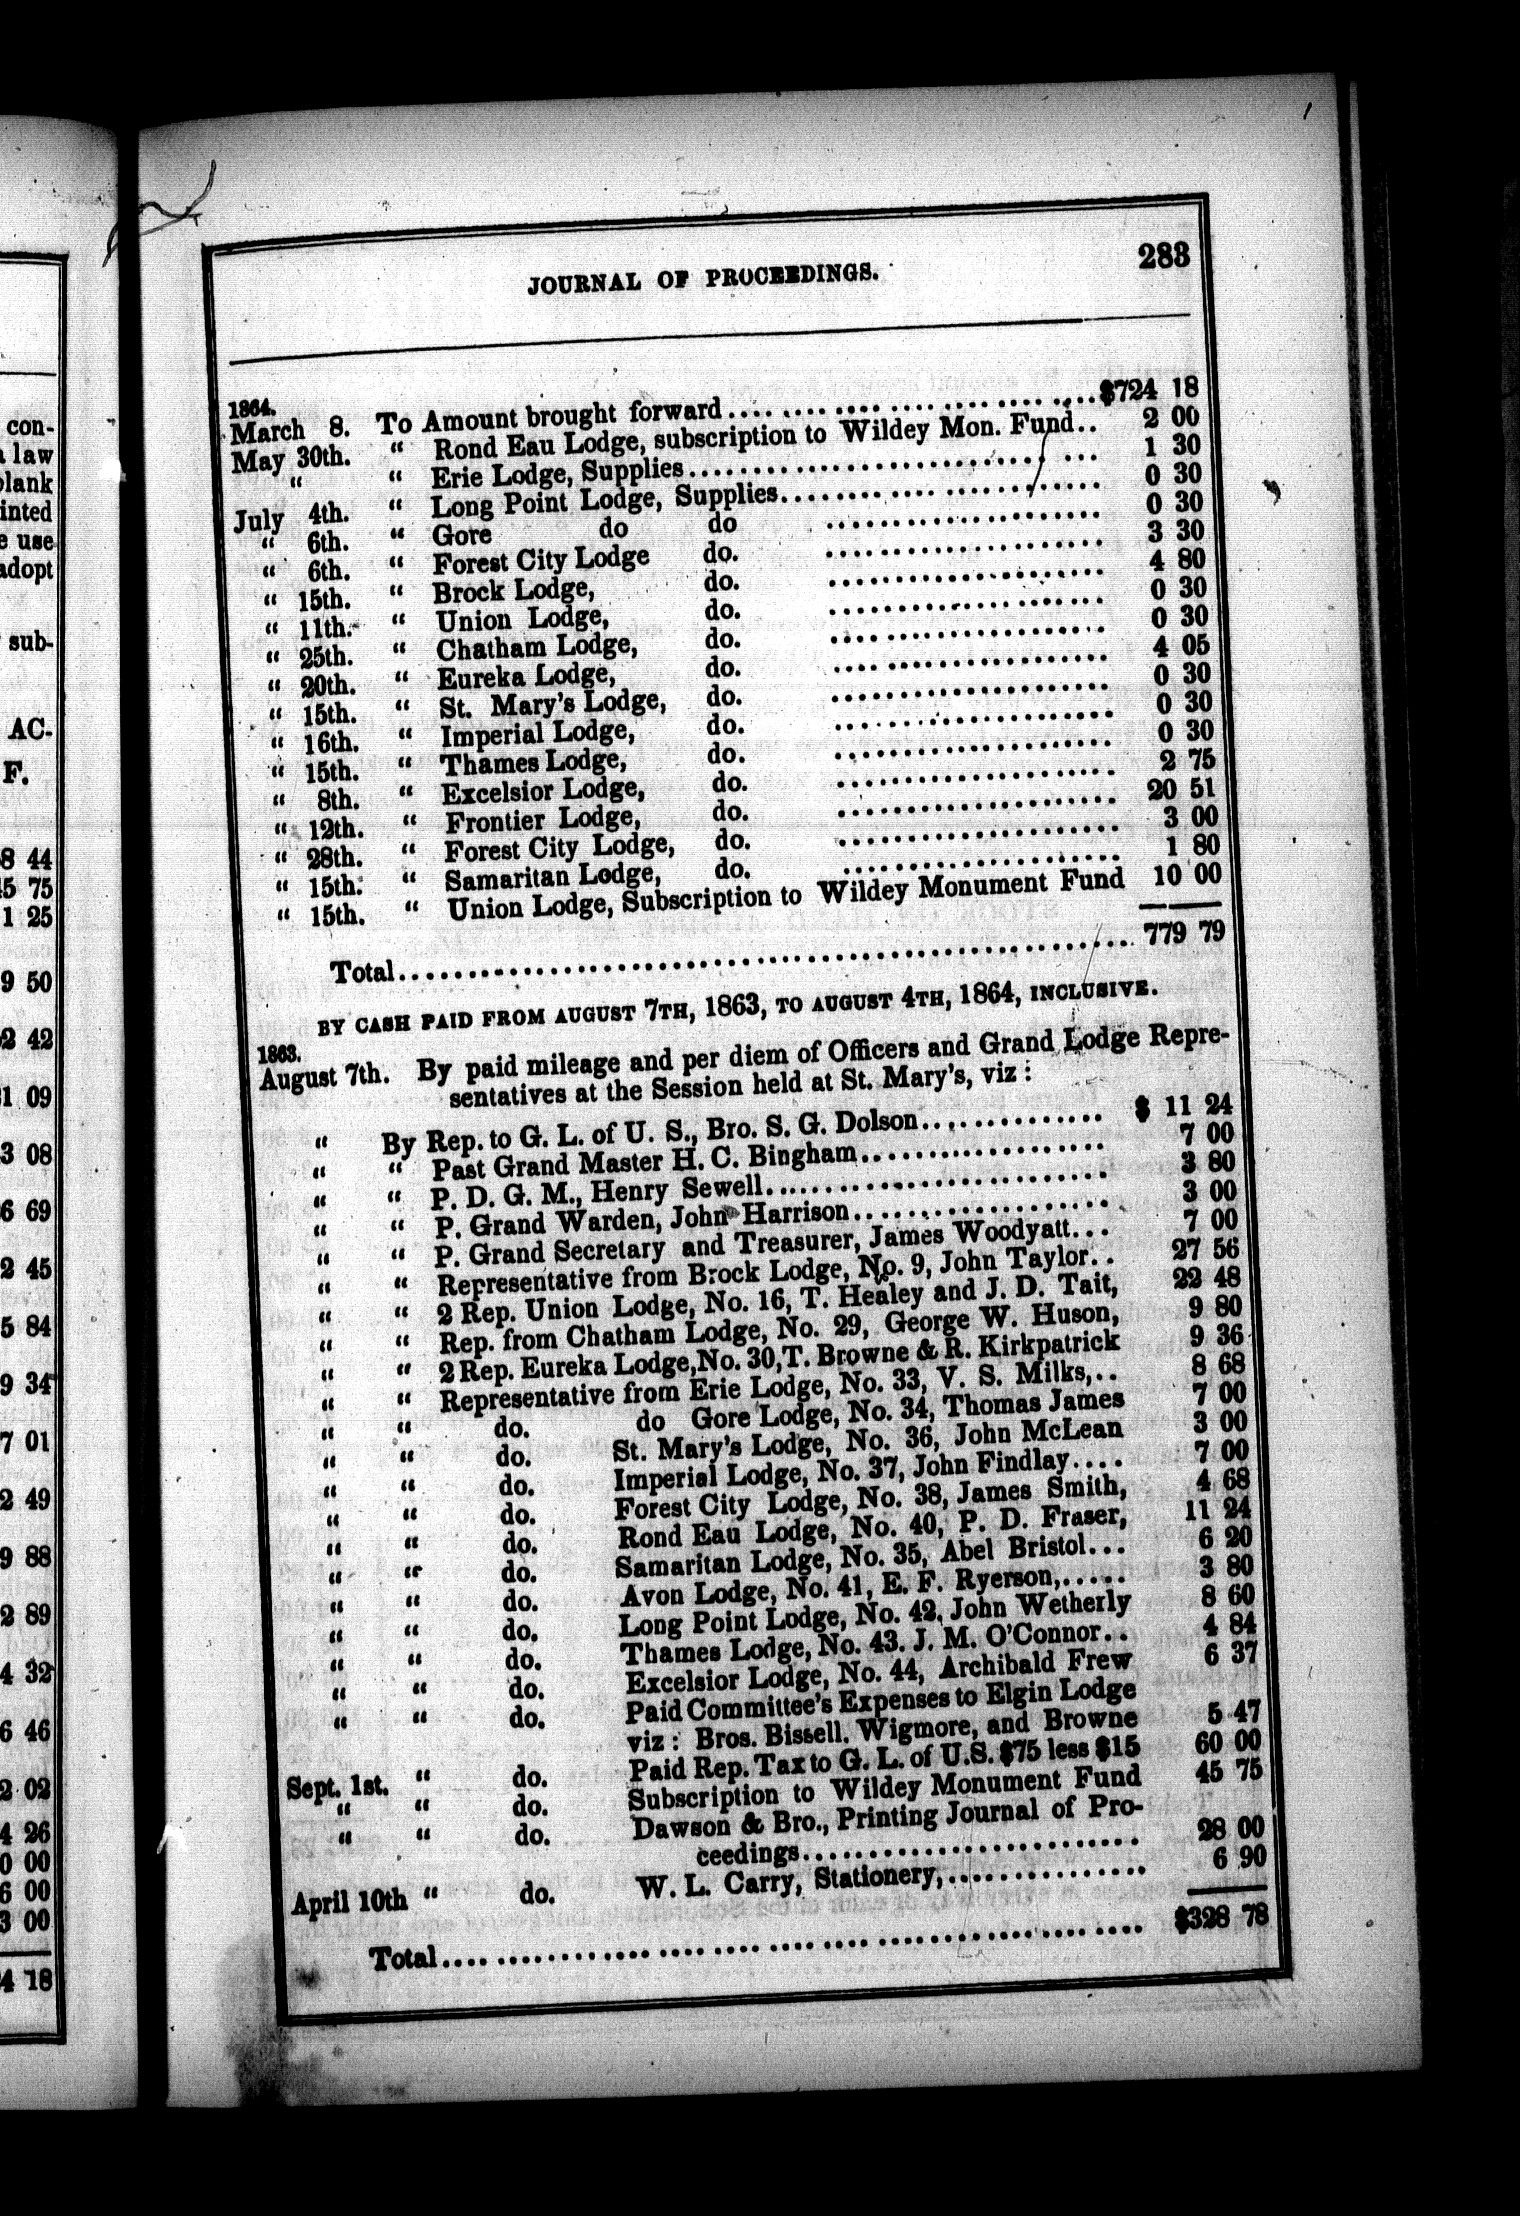 con-
law
blank
inted
e use
adopt
sub-
AC-
F.
8 44
5 75
1 25
9 50
2 42
1 09
3 08
6 69
2 45
5 84
9 34
7 01
2 49
9 88
2 89
4 32
6 46
2 02
4 26
0 00
6 00
3 00
4 18
JOURNAL OF PROCEEDINGS. 283
1864.
March 8. To Amount brought forward.... .... .... .... .... .... ....$724 18
May 30th. “ Rond Eau Lodge, subscription to Wildey Mon. Fund.. 2 00
“ “ Erie Lodge, Supplies.............................. 1 30
July 4th. “ Long Point Lodge, Supplies........................ 0 30
“ 6th. “ Gore do do .................... 0 30
“ 6th. “ Forest City Lodge do. .................... 3 30
“ 15th. “ Brock Lodge, do. .................... 4 80
“ 11th. “ Union Lodge, do. .................... 0 30
“ 25th. “ Chatham Lodge, do. .................... 0 30
“ 20th. “ Eureka Lodge, do. .................... 4 05
“ 15th. “ St. Mary's Lodge, do. .................... 0 30
“ 16th. “ Imperial Lodge, do. .................... 0 30
“ 15th. “ Thames Lodge, do. .................... 0 30
“ 8th. “ Excelsior Lodge, do. .................... 2 75
“ 12th. “ Frontier Lodge, do. .................... 20 51
“ 28th. “ Forest City Lodge, do. .................... 3 00
“ 15th. “ Samaritan Lodge, do. .................... 1 80
“ 15th. “ Union Lodge, Subscription to Wildey Monument Fund 10 00
Total.................................................... 779 79
BY CASH PAID FROM AUGUST 7TH, 1863, TO AUGUST 4TH, 1864, INCLUSIVE.
1863.
August 7th. By paid mileage and per diem of Officers and Grand Lodge Repre-
sentatives at the Session held at St. Mary's, viz :
“ By Rep. to G. L. of U. S., Bro. S. G. Dolson.............. $ 11 24
“ “ Past Grand Master H. C. Bingham.................. 7 00
“ “ P. D. G. M., Henry Sewell......................... 3 80
“ “ P. Grand Warden, John Harrison................... 3 00
“ “ P. Grand Secretary and Treasurer, James Woodyatt... 7 00
“ “ Representative from Brock Lodge, No. 9, John Taylor.. 27 56
“ “ 2 Rep. Union Lodge, No. 16, T. Healey and J. D. Tait, 22 48
“ “ Rep. from Chatham Lodge, No. 29, George W. Huson, 9 80
“ “ 2 Rep. Eureka Lodge, No. 30, T. Browne & R. Kirkpatrick 9 36
“ “ Representative from Erie Lodge, No. 33, V. S. Milks,.. 8 68
“ “ do. do Gore Lodge, No. 34, Thomas James 7 00
“ “ do. St. Mary's Lodge, No. 36, John McLean 3 00
“ “ do. Imperial Lodge, No. 37, John Findlay.... 7 00
“ “ do. Forest City Lodge, No. 38, James Smith, 4 68
“ “ do. Rond Eau Lodge, No. 40, P. D. Fraser, 11 24
“ “ do. Samaritan Lodge, No. 35, Abel Bristol... 6 20
“ “ do. Avon Lodge, No. 41, E. F. Ryerson,..... 3 80
“ “ do. Long Point Lodge, No. 42, John Wetherly 8 60
“ “ do. Thames Lodge, No. 43. J. M. O'Connor.. 4 84
“ “ do. Excelsior Lodge, No. 44, Archibald Frew 6 37
“ “ do. Paid Committee's Expenses to Elgin Lodge
viz : Bros. Bissell, Wigmore, and Browne 5 47
Sept. 1st. “ do. Paid Rep. Tax to G. L. of U.S. $75 less $15 60 00
“ “ do. Subscription to Wildey Monument Fund 45 75
“ “ do. Dawson & Bro., Printing Journal of Pro-
ceedings......................... 28 00
April 10th “ do. W. L. Carry, Stationery,............... 6 90
Total.... ............ .... .... .... .... ............ .... $328 78